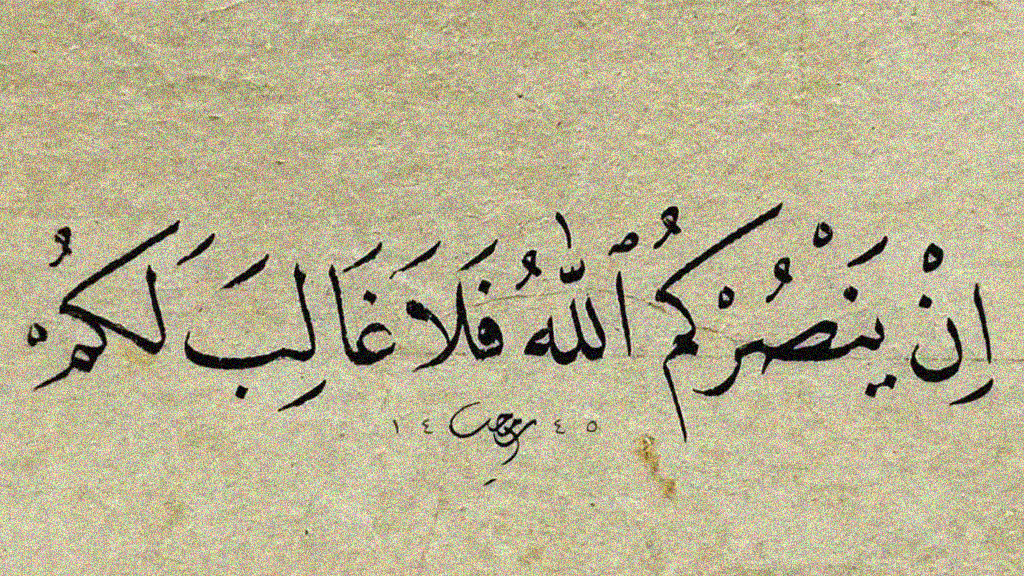 اِنْ يَنْصُرْكُمُ ٱللّٰهُ فَلَا غَالِبَ لَكُمْ
١٤ ٤٥